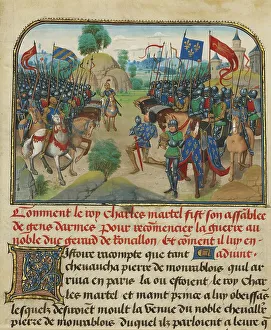 Comment le roy Charles martel fist son assablee
de gens darmes Pour recomencier la guerre au
noble duc gerard de roncillon Et coment il luy en
Istoire racompte que tant aduint
cheuaucha pierre de monrablois quil ar
riua en paris la ou estoient le roy Char
les martel et maint prince a luy obeissās
lesquelz desiroiēt moult la venue du noble cheualier
pierre de monrablois duquel ilz parloient a leur